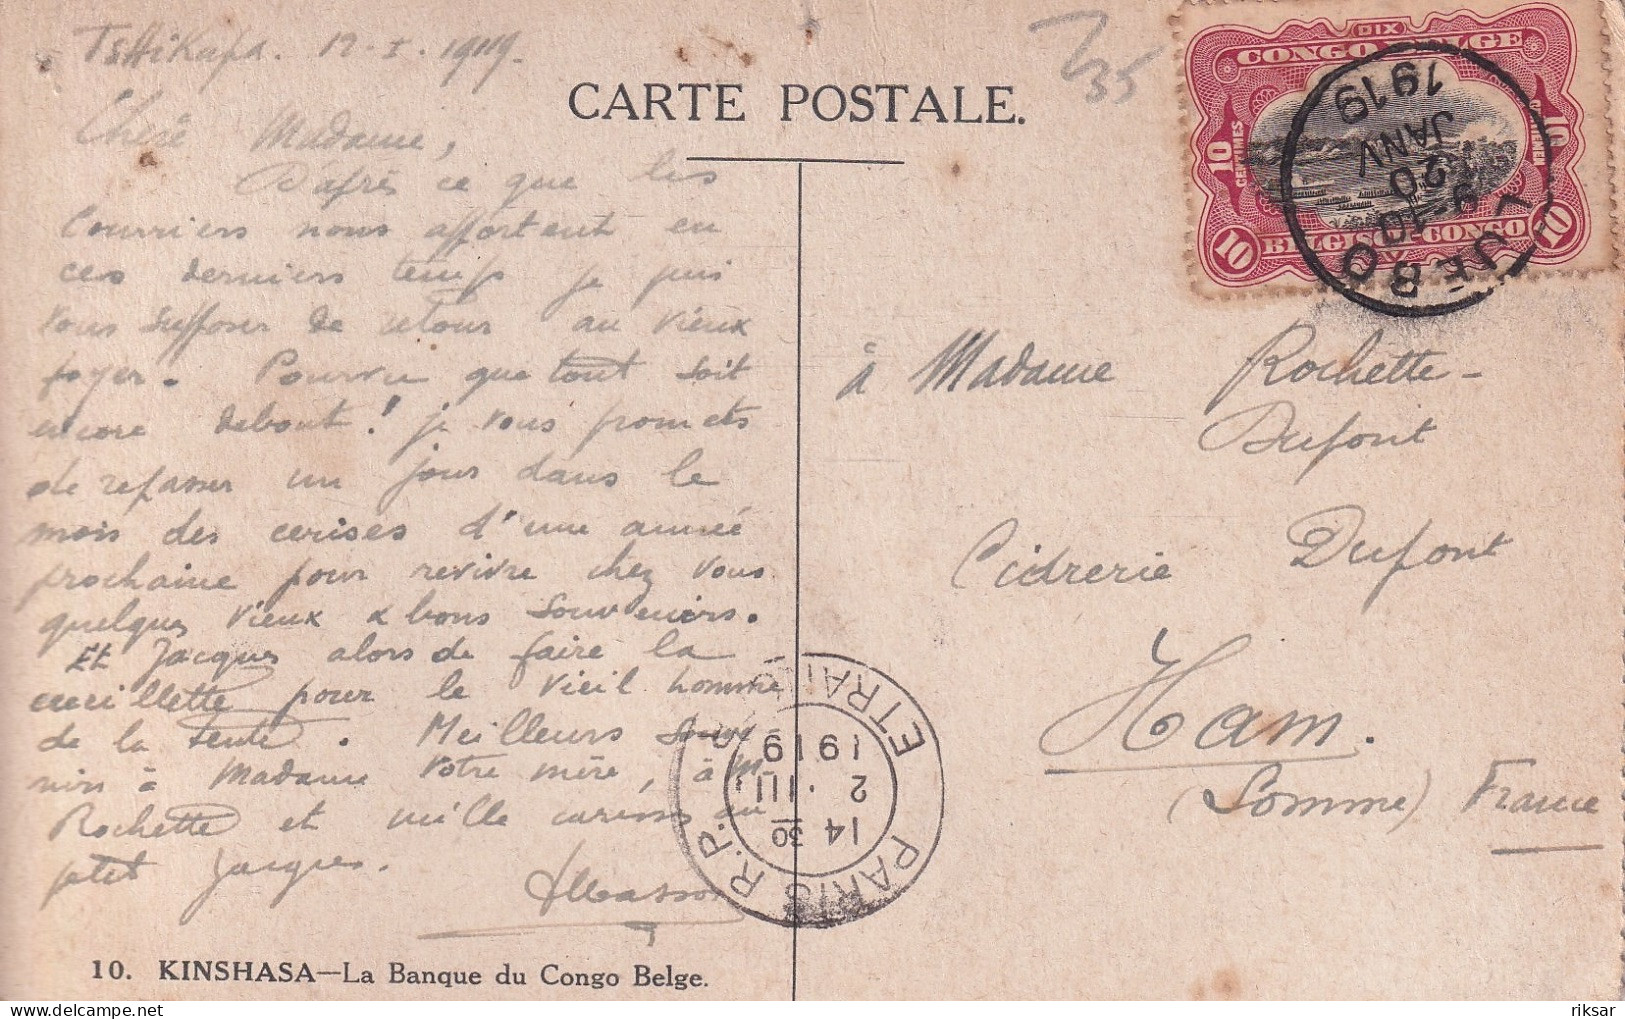 Tshikapa. 17-I-1919.
CARTE POSTALE.
Chère Madame,
D'après ce que les
Courriers nous apportent en
ces derniers temps je puis
vous supposer de retour au vieux
foyer. Pourvu que tout soit
encore debout! je vous promets
de repasser un jour dans le
mois des cerises d'une année
prochaine pour revivre chez vous
quelques vieux & bons souvenirs.
Et Jacques alors de faire la
cueillette pour le vieil homme
de la tente. Meilleurs souve-
nirs à Madame votre mère, à M
Rochette et mille caresses au
petit Jacques.
Masson
10. KINSHASA—La Banque du Congo Belge.
DIX
CONGO BELGE
10 CENTIMES
10
BELGISCH CONGO
10
10
LUEBO
9-10
20
JANV
1919
à Madame Rochette-
Dupont
Cidrerie Dupont
Ham.
(Somme) France
PARIS R.P. ETRANGER
14 30
2 . III
1919
riksar